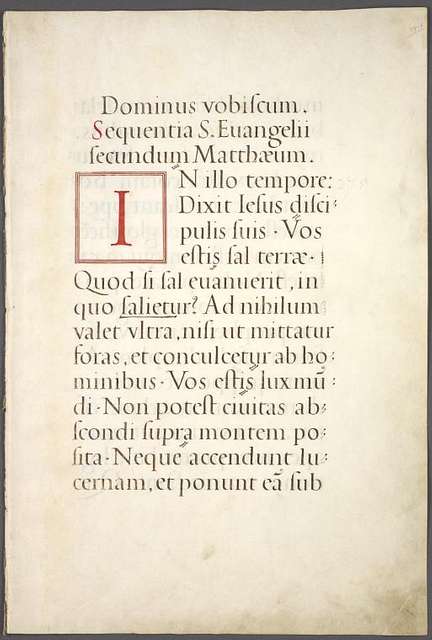 Dominus vobiſcum.
Sequentia S. Euangelii
ſecundum Matthæum.
IN illo tempore:
Dixit Ieſus diſci⸗
pulis ſuis · Vos
eſtis ſal terræ ·
Quod ſi ſal euanuerit, in
quo ſalietur? Ad nihilum
valet vltra, niſi ut mittatur
foras, et conculcetur ab ho⸗
minibus · Vos eſtis lux mū⸗
di · Non poteſt ciuitas ab⸗
ſcondi ſupra montem po⸗
ſita · Neque accendunt lu⸗
cernam, et ponunt eā ſub